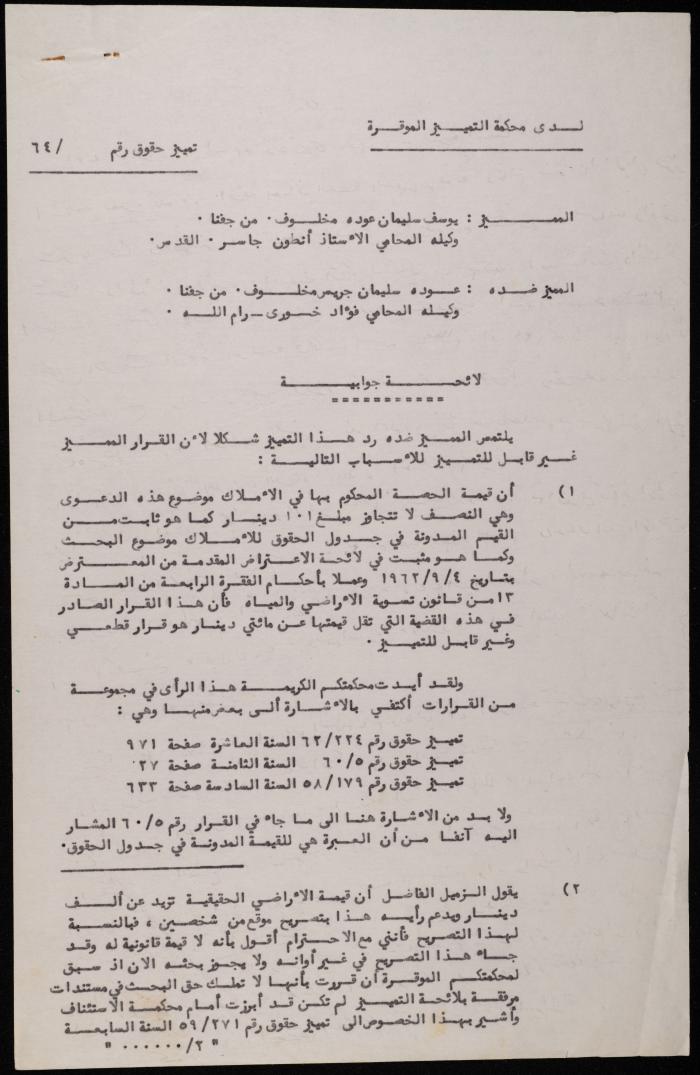 لدى محكمة التمييز الموقرة
تمييز حقوق رقم / ٦٤
المميز : يوسف سليمان عوده مخلوف٠ من جفنا ٠
وكيله المحامي الاستاذ أنطون جاسر ٠ القدس٠
المميز ضده : عوده سليمان جريس مخلوف٠ من جفنا ٠
وكيله المحامي فؤاد خوري ـ رام الله ٠
لائحة جوابية
===========
يلتمس المميز ضده رد هذا التمييز شكلا لأن القرار المميز
غير قابل للتمييز للأسباب التالية :
١) أن قيمة الحصة المحكوم بها في الأملاك موضوع هذه الدعوى
وهي النصف لا تتجاوز مبلغ ١٠١ دينار كما هو ثابت من
القيم المدونة في جدول الحقوق للأملاك موضوع البحث
وكما هو مثبت في لائحة الاعتراض المقدمة من المعترض
بتاريخ ١٩٦٢/٩/٤ وعملا بأحكام الفقرة الرابعة من المادة
١٣ من قانون تسوية الأراضي والمياه فأن هذا القرار الصادر
في هذه القضية التي تقل قيمتها عن مائتي دينار هو قرار قطعي
وغير قابل للتمييز ٠
ولقد أيدت محكمتكم الكريمة هذا الرأى في مجموعة
من القرارات أكتفي بالأشارة ألى بعض منها وهي :
تمييز حقوق رقم ٦٢/٢٢٤ السنة العاشرة صفحة ٩٧١
تمييز حقوق رقم ٦٠/٥ السنة الثامنة صفحة ٢٧
تمييز حقوق رقم ٥٨/١٧٩ السنة السادسة صفحة ٦٣٣
ولا بد من الأشارة هنا الى ما جاء في القرار رقم ٦٠/٥ المشار
اليه آنفا من أن العبرة هي للقيمة المدونة في جدول الحقوق٠
٢) يقول الزميل الفاضل أن قيمة الأراضي الحقيقية تزيد عن ألف
دينار ويدعم رأيه هذا بتصريح موقع من شخصين ، فبالنسبة
لهذا التصريح فأنني مع الاحترام أقول بأنه لا قيمة قانونية له وقد
جاء هذا التصريح في غير أوانه ولا يجوز بحثه الان اذ سبق
لمحكمتكم الموقرة أن قررت بأنها لا تملك حق البحث في مستندات
مرفقة بلائحة التمييز لم تكن قد أبرزت أمام محكمة الاستئناف
وأشير بهذا الخصوص الى تمييز حقوق رقم ٥٩/٢٧١ السنة السابعة
" ٢/٠٠٠٠٠٠ "